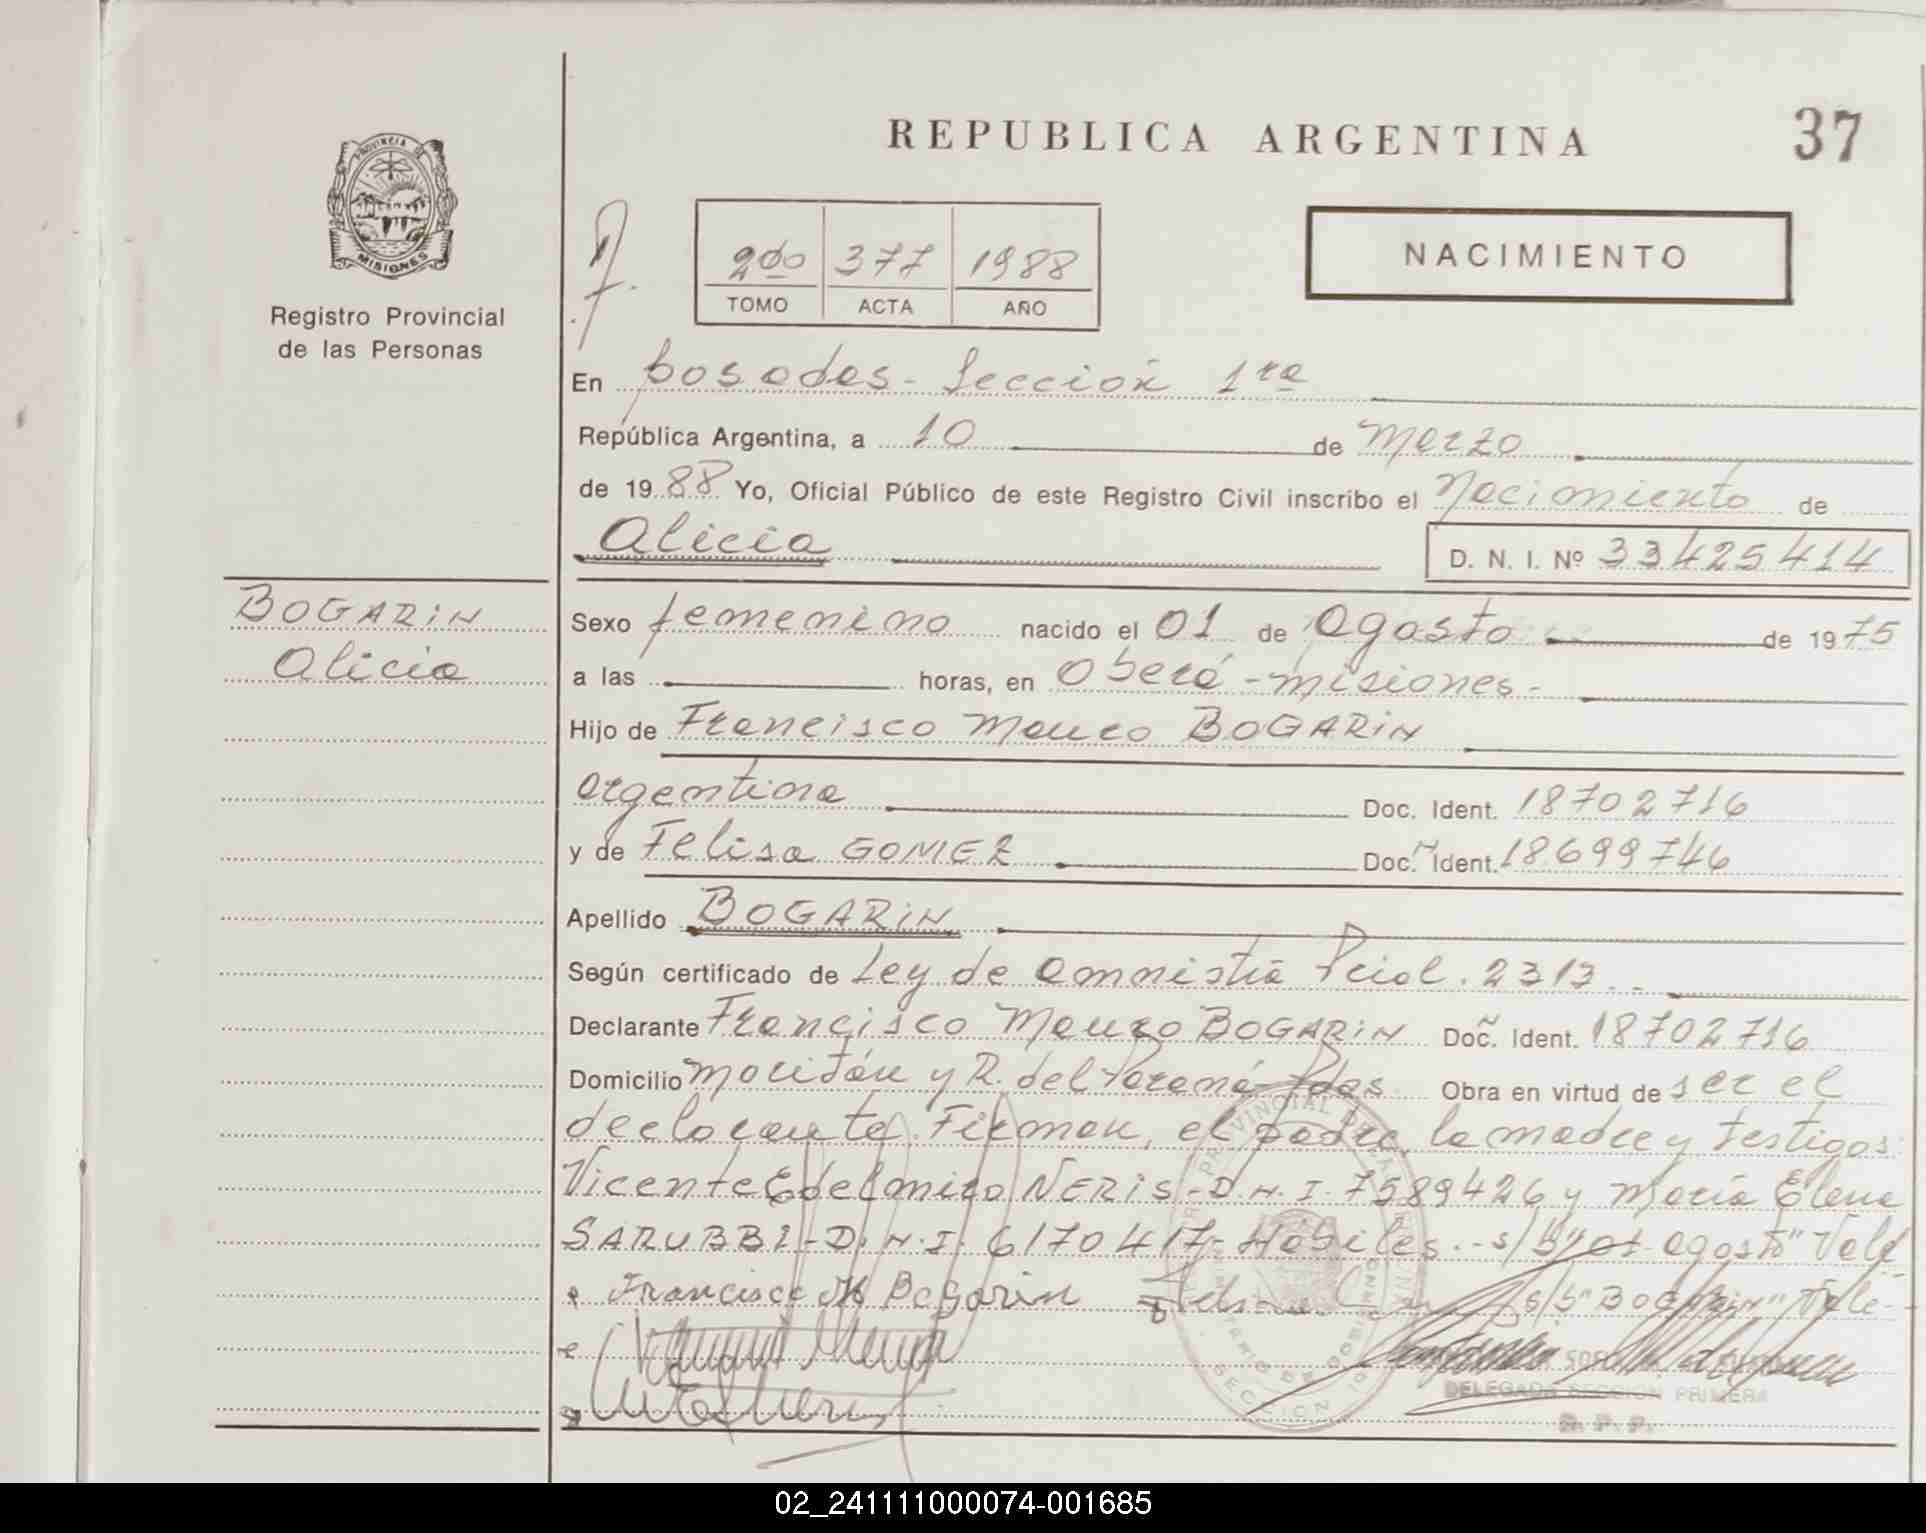 REPUBLICA ARGENTINA
37
PROVINCIA DE
MISIONES
Registro Provincial
de las Personas
2do 377 1988
TOMO ACTA AÑO
NACIMIENTO
En posadas - Sección 1ra
República Argentina, a 10 de Marzo
de 1988 Yo, Oficial Público de este Registro Civil inscribo el Nacimiento de
Alicia
D. N. I. Nº 33425414
BOGARIN
Alicia
Sexo femenino nacido el 01 de Agosto de 1975
a las horas, en Oberá - Misiones -
Hijo de Francisco Mauro BOGARIN
argentina Doc. Ident. 18702716
y de Felisa GOMEZ Doc. Ident. 18.699746
Apellido BOGARIN
Según certificado de Ley de amnistía Pcial. 2313. -
Declarante Francisco Mauro BOGARIN Doc. Ident. 18702716
Domicilio Moritán y R. del Paraná - Pdas Obra en virtud de ser el
declarante. Firman, el padre, la madre y testigos
Vicente Edelmiro NERIS - D.N.I. 7589426 y María Elena
SARUBBI - D.N.I. 6170417 - Hábiles. - s/b 01 agosto" Vale
Francisco M BoGarin s/b "BOGARIN" Vale -
DELEGADA SECCION PRIMERA
R. P. P.
02_241111000074-001685